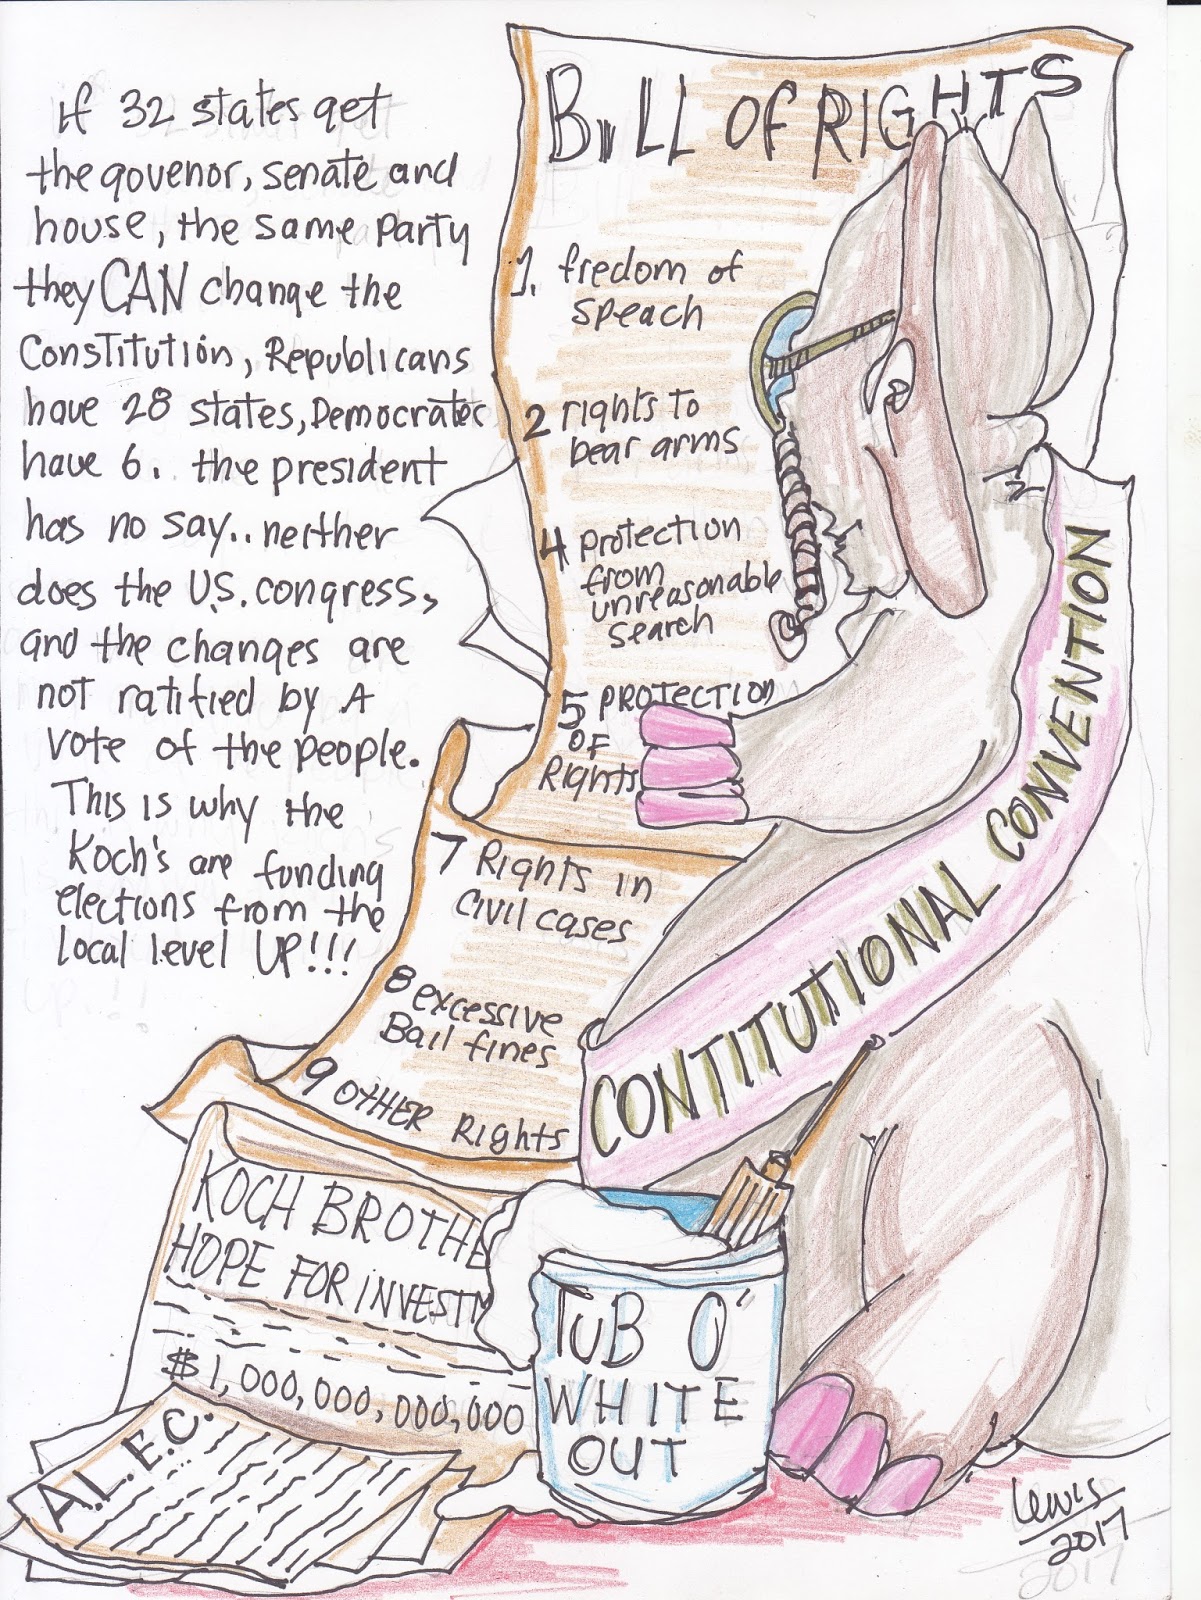 If 32 states get
the govenor, senate and
house, the same party
they CAN change the
Constitution, Republicans
have 28 states, Democrates
have 6. the president
has no say.. neither
does the U.S. congress,
and the changes are
not ratified by A
vote of the people.
This is why the
Koch's are funding
elections from the
local level UP!!!
BiLL OF RIGHTS
1. fredom of
speach
2 rights to
bear arms
4 protection
from
unreasonable
search
5 PROTECTION
OF
Rights
7 Rights in
Civil cases
8 excessive
Bail fines
9 OTHER Rights
CONTITUTIONAL CONVENTION
KOCH BROTHE
HOPE FOR INVESTM
$1,000,000,000,000
A.L.E.C.
TUB O'
WHITE
OUT
Lewis
2017